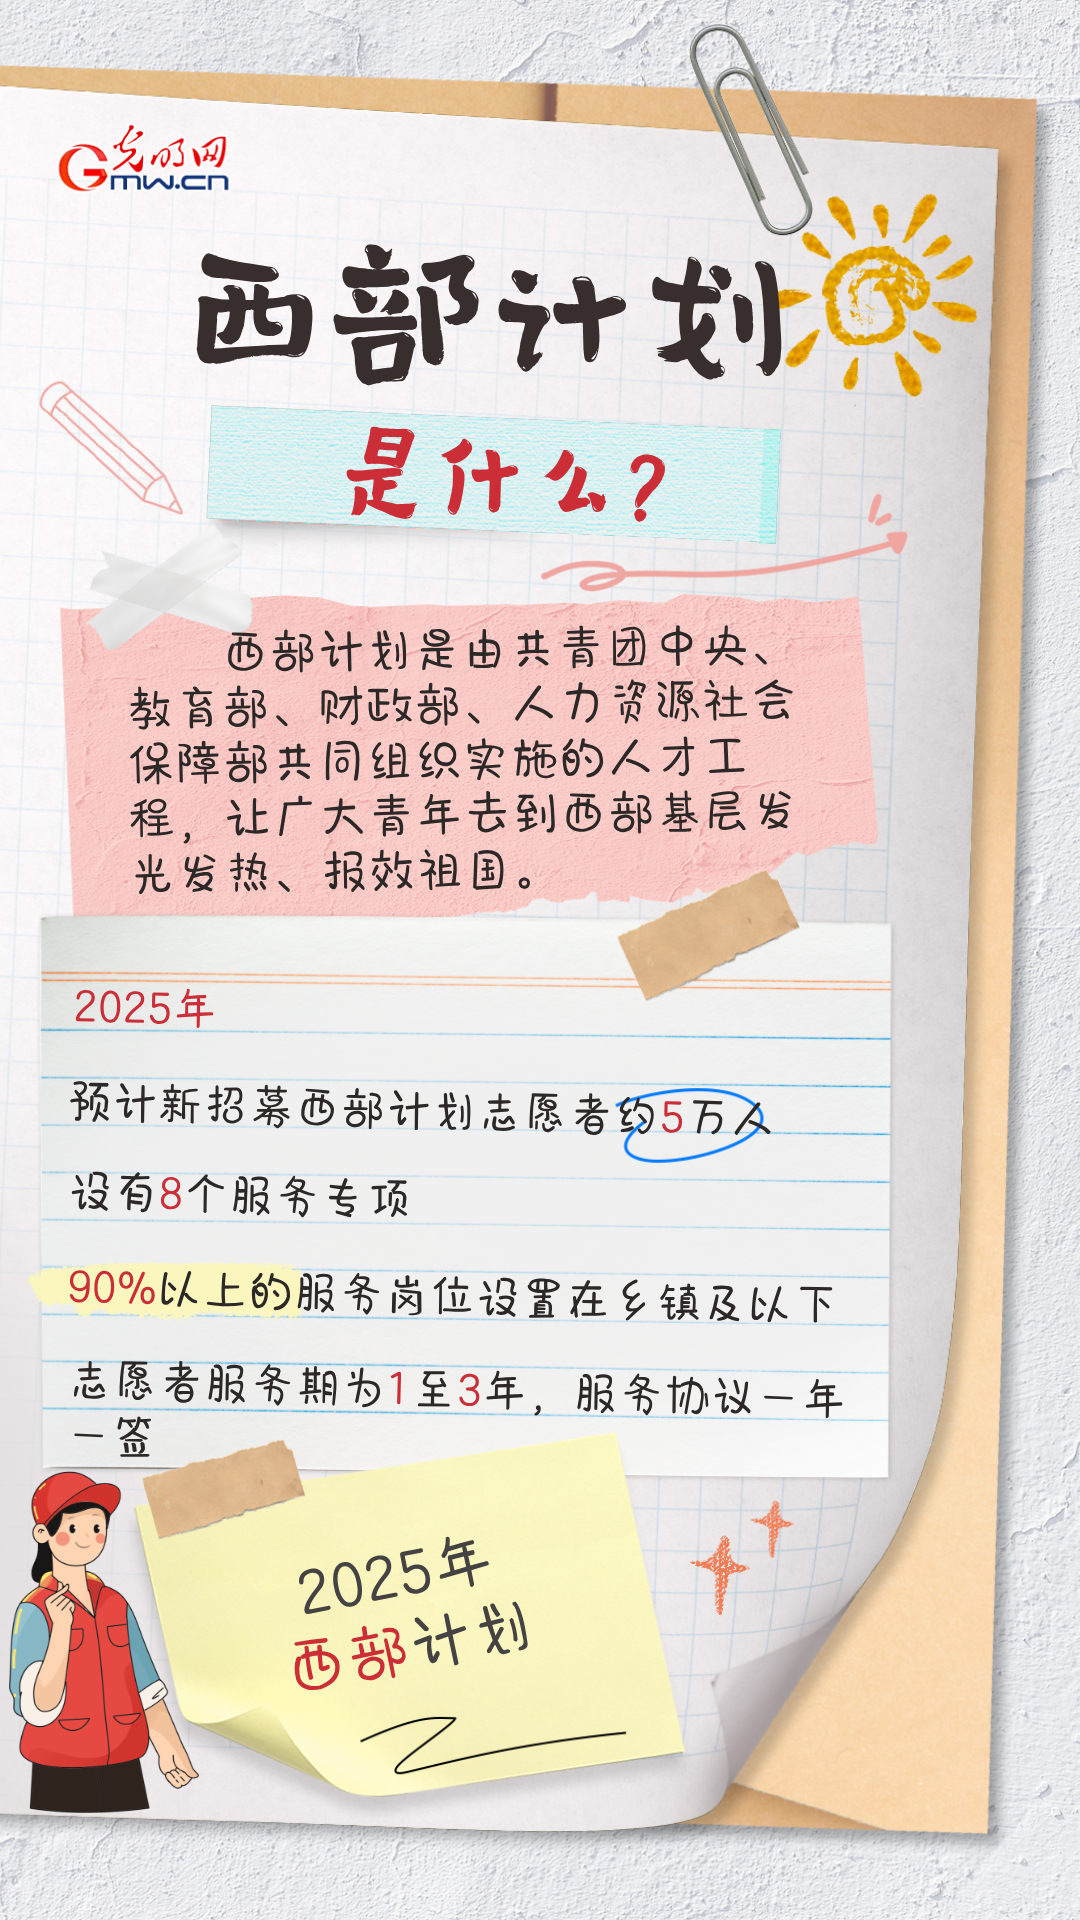 光明网
GMW.CN
西部计划
是什么?
西部计划是由共青团中央、
教育部、财政部、人力资源社会
保障部共同组织实施的人才工
程，让广大青年去到西部基层发
光发热、报效祖国。
2025年
预计新招募西部计划志愿者约5万人
设有8个服务专项
90%以上的服务岗位设置在乡镇及以下
志愿者服务期为1至3年，服务协议一年
一签
2025年
西部计划